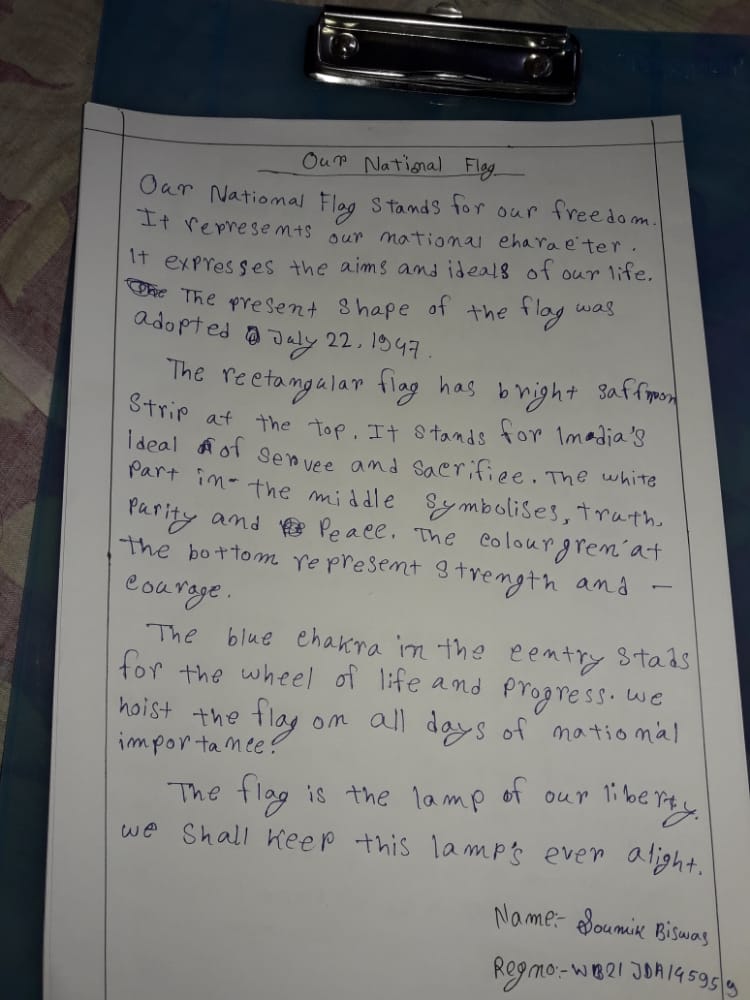 Our National Flag
Our National Flag Stands for our freedom.
It represents our national eharaeter.
It expresses the aims and ideals of our life.
The present Shape of the flag was
adopted July 22, 1947.
The reetangular flag has bright saffroon
Strip at the top. It Stands for Imadia's
Ideal of Servee and Sacrifiee. The white
Part in- the middle Symbolises, truth,
Parity and Peaee. The eolour gren at
the bottom represent Strength and -
eourage.
The blue ehakra in the eentry Stads
for the wheel of life and Progress. we
hoist the flag on all days of national
importanee.
The flag is the lamp of our liberty.
we Shall Keep this lamp's ever alight.
Name:- Soumik Biswas
Regno:- WB21 JDA